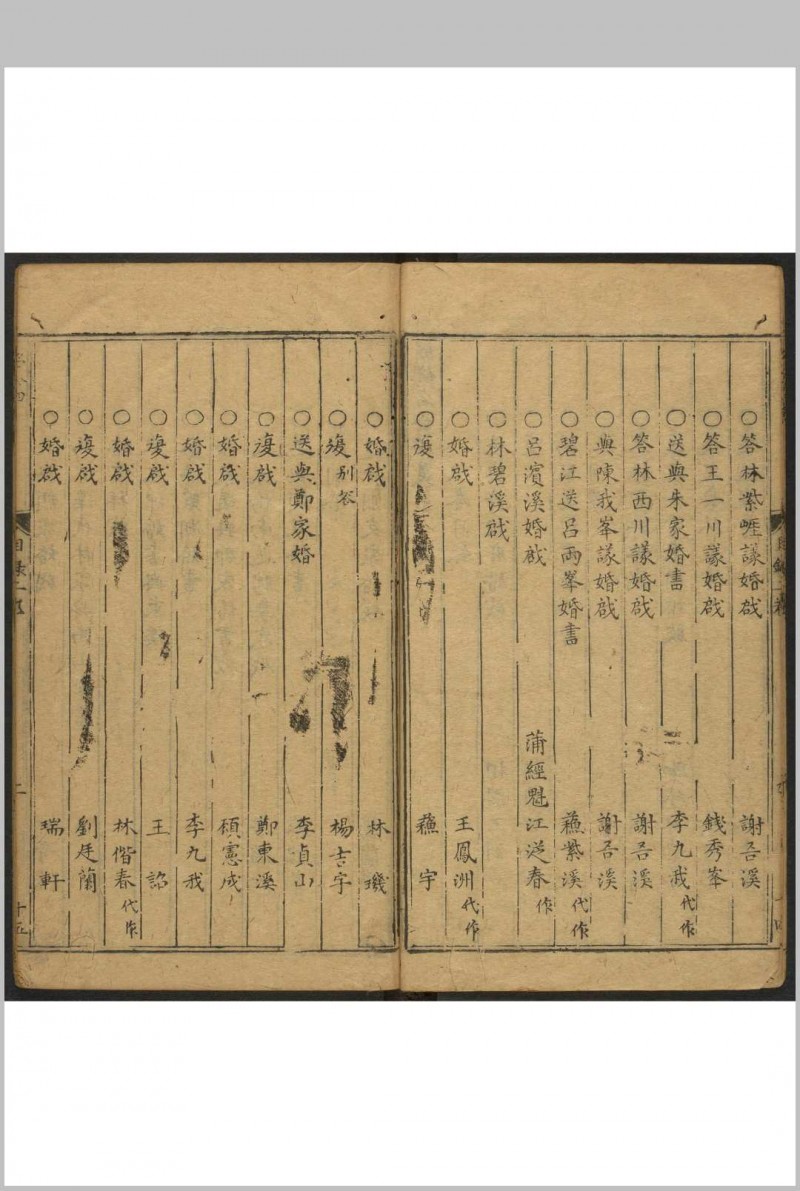 ○答林紫崕議婚啟 謝吾溪
○答王一川議婚啟 錢秀峯
○送與朱家婚書 李九我代作
○答林西川議婚啟 謝吾溪
○與陳我峯議婚啟 謝吾溪
○碧江送呂兩峯婚書 蘓紫溪代作
○呂濱溪婚啟 蒲經魁江從春作
○林碧溪啟
○婚啟 王鳳洲代作
○復 蘓宇
○婚啟 林璣
○復別茶 楊吉宇
○送與鄭家婚 李貞山
○復啟 鄭東溪
○婚啟 顧憲成
○婚啟 李九我
○復啟 王韶
○婚啟 林偕春代作
○復啟 劉廷蘭
○婚啟 瑞軒
目錄二卷
十五